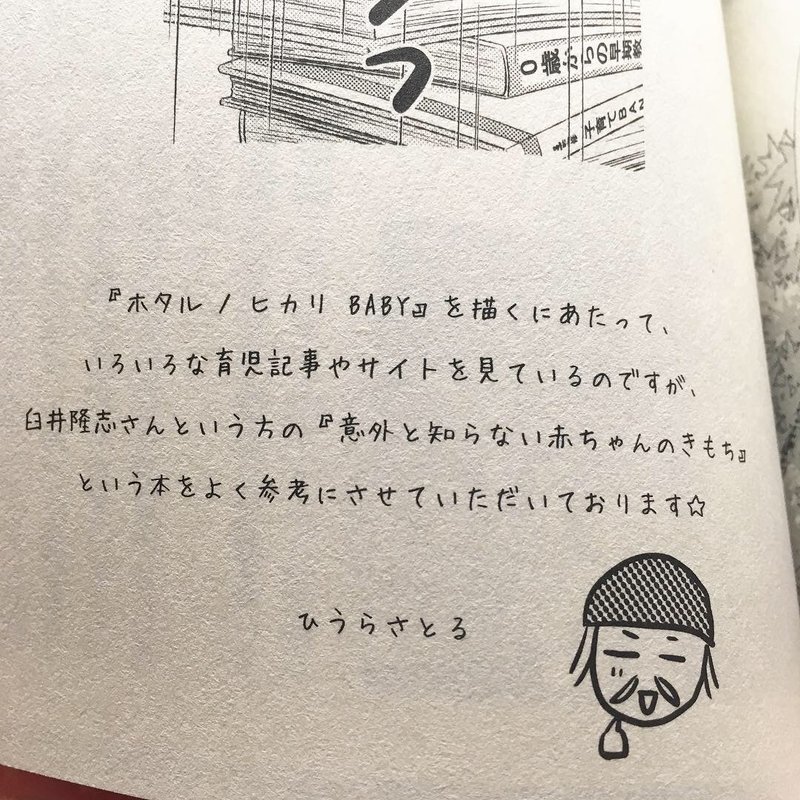 フ
0歳からの早期教
子育てBAN
『ホタルノヒカリ BABY』を描くにあたって、
いろいろな育児記事やサイトを見ているのですが、
臼井隆志さんという方の『意外と知らない赤ちゃんのきもち』
という本をよく参考にさせていただいております☆
ひうらさとる